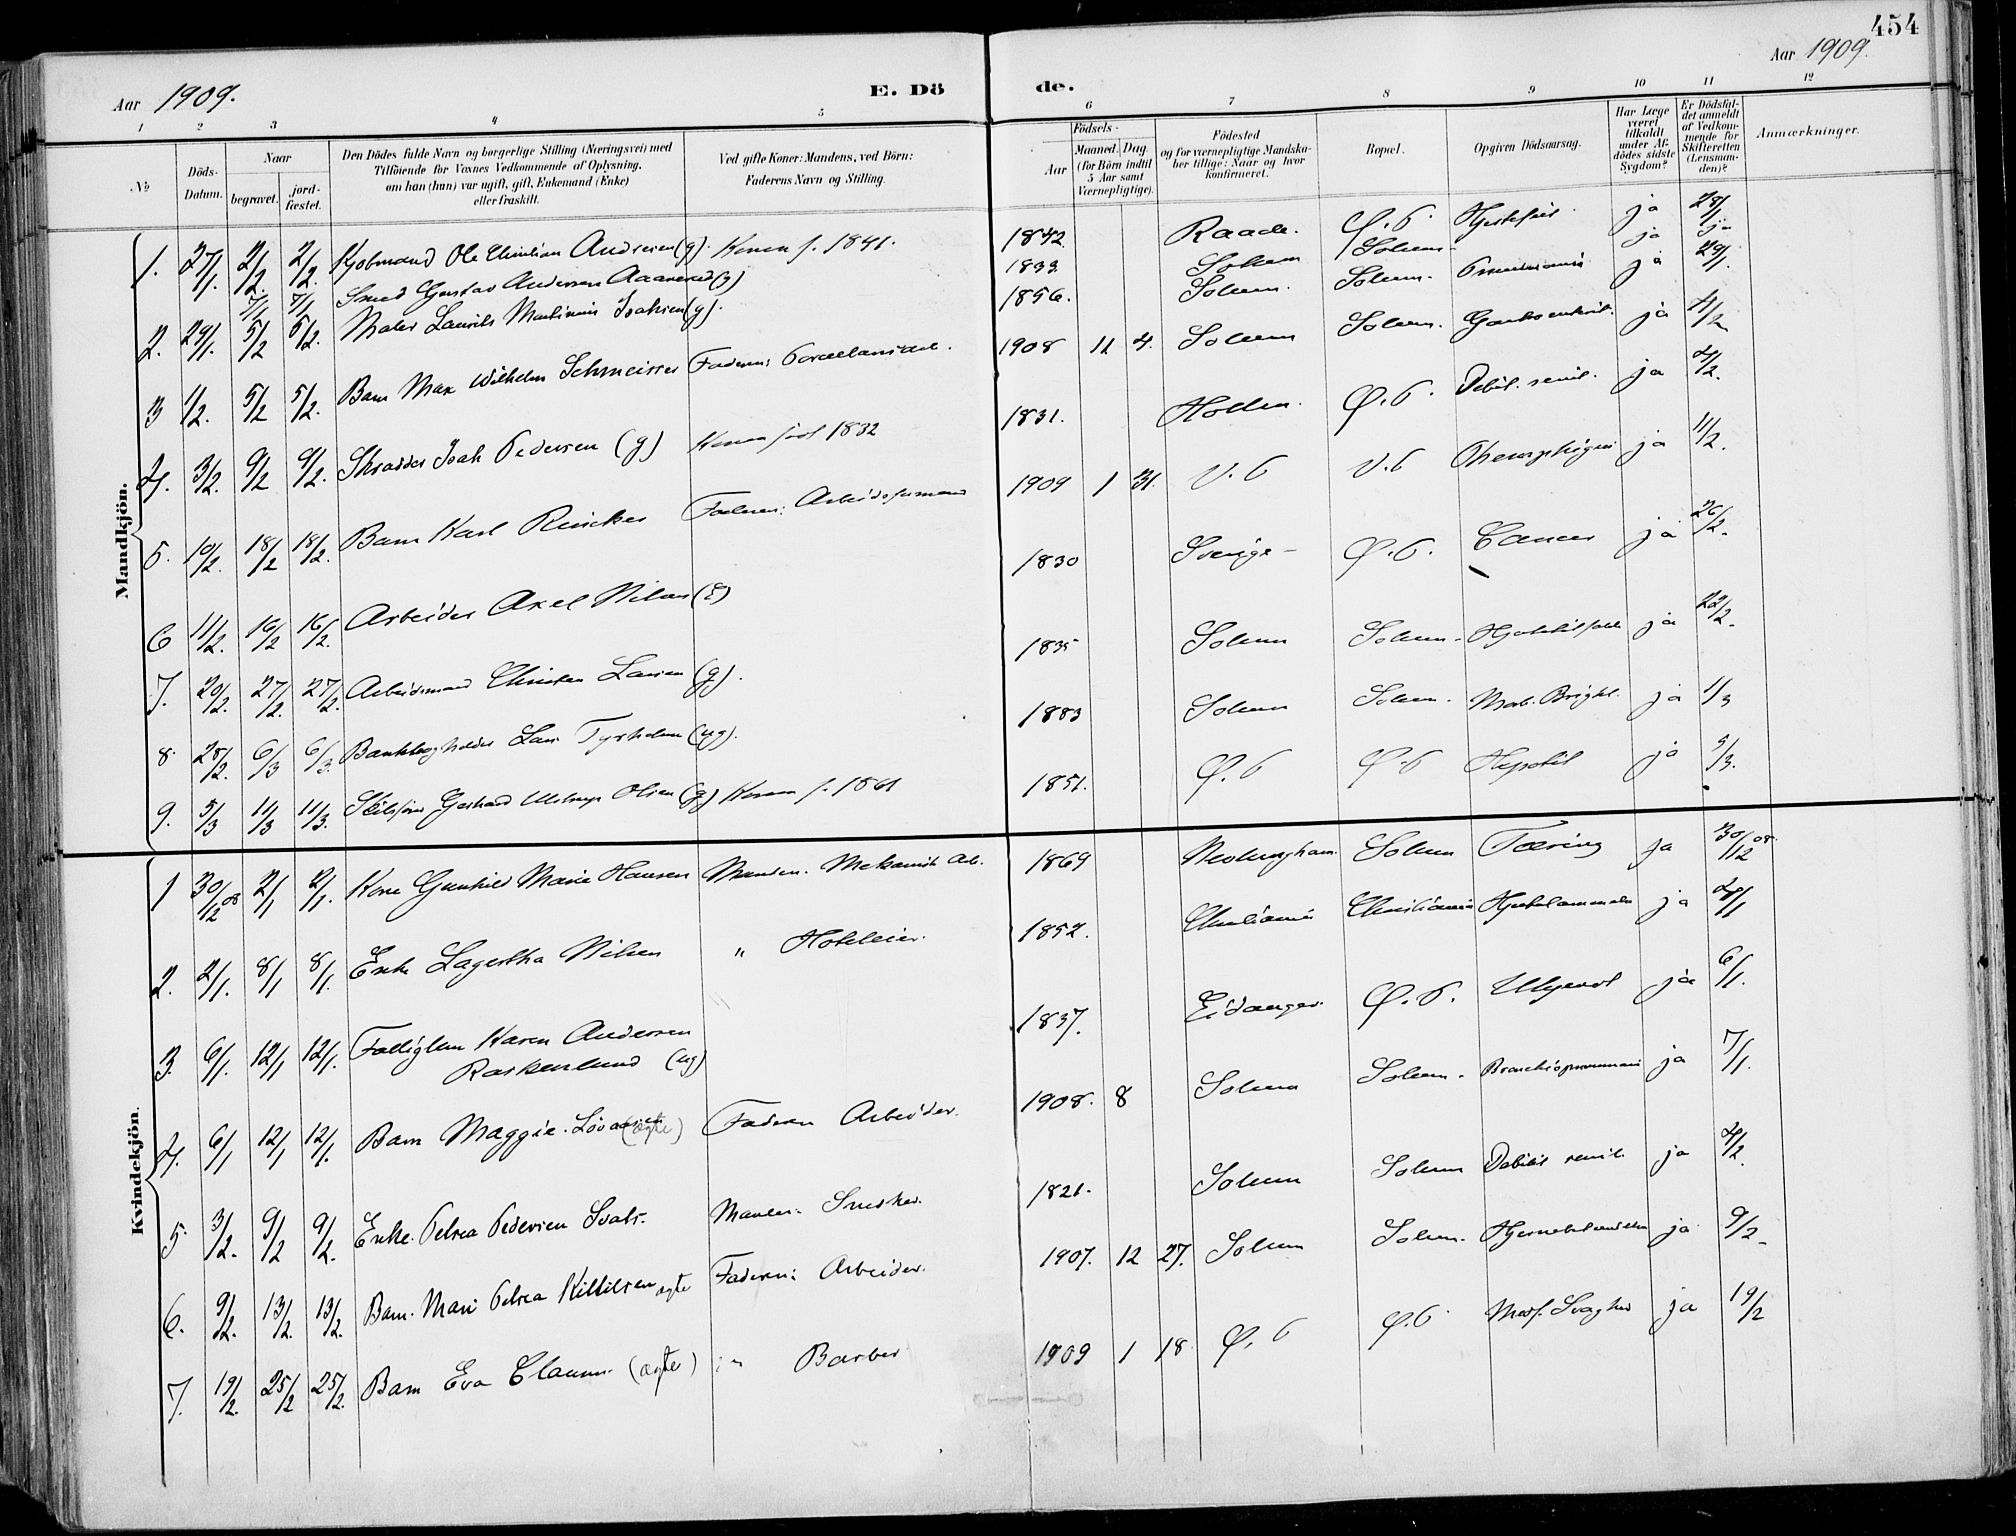 454
Aar 1909.
E. Dö
de.
Aar 1909.
1 2 3 4 5 6 7 8 9 10 11 12
No
Döds-Datum.
Naar
begravet.
jord-fæstet.
Den Dödes fulde Navn og borgerlige Stilling (Næringsvei) med
Tilföiende for Voxnes Vedkommende af Oplysning,
om han (hun) var ugift, gift, Enkemand (Enke)
eller fraskilt.
Ved gifte Koner: Mandens, ved Börn:
Faderens Navn og Stilling.
Födsels-
Aar
Maaned. Dag.
(for Börn indtil
5 Aar samt
Værnepligtige).
Födested
og for værnepligtige Mandska-
ber tillige: Naar og hvor
konfirmeret.
Bopæl.
Opgiven Dödsaarsag.
Har Læge
været
tilkaldt
under Af-
dödes sidste
Sygdom?
Er Dödsfal-
det anmeldt
af Vedkom-
mende for
Skifteretten
(Lensman-
den)?
Anmærkninger.
Mandkjön.
1. 27/1. 2/2. 2/2. Kjøbmand Ole Christian Andresen (g). Konen f. 1841. 1842. Raade. Ø. P. Hjertefeil ja 28/1
7/1 7/1 Smed Gustav Andersen 1833 Solum Solum ja
2. 29/1. 5/2 5/2. Maler Laurits Martinius Isaksen (g). 1856. Solum. Solum. ja 29/1.
3 1/2. 5/2 5/2. Barn Max Wilhelm Schmeisser Faderen: Porcellænsarb. 1908 11 4. Solum Solum. ja 4/2
4. 3/2. 9/2 9/2. Skrædder Isak Pedersen (g) Konen født 1832 1831. Hollen. Ø. P. Debil. senil. ja 4/2.
5. 10/2. 18/2 18/2. Barn Karl Faderen: Arbeidsformand 1909 1 31. V. P V. P ja 11/2.
6 11/2. 16/2 16/2. Arbeider Axel Nilsen (E) 1830 Sverige Ø. P. Cancer ja 26/2.
7. 20/2. 27/2. 27/2. Arbeidsmand Christen Larsen (g). 1835 Solum Solum. ja 22/2.
8. 28/2. 6/3 6/3. Bankbogholder Lars Tyrholm (ug). 1883 Solum Solum. Morb. Brighti ja 1/3
9. 5/3 11/3 11/3. Gerhard Olsen (g) Konen f. 1861 1851. Ø. P Ø. P ja 5/3.
Kvindekjön.
1 30/12 08 2/1 2/1. Kone Gunhild Marie Hansen Manden. Mekanisk Arb. 1869 Nedenes Solum Tæring ja 30/12 08.
2. 2/1. 8/1 8/1. Enke Lagertha Nilsen " Hoteleier. 1852. Christiania Christiania ja 4/1
3. 6/1. 12/1 12/1. Fattiglem Karen Andersen
Raskenlund (ug) 1837. Eidanger. Ø. P. Ukjendt ja 6/1.
4. 6/1 12/1 12/1. Barn Maggie (ægte) Faderen Arbeider. 1908. 8 Solum Solum. ja 7/1.
5. 3/2. 9/2 9/2. Enke. Petrea Pedersen Manden Snedker. 1821. Solum Solum Debilit senil. ja 4/2.
6. 9/2. 13/2. 13/2. Barn. Mari Petrea Kittilsen ægte Faderen: Arbeider. 1907. 12 27. Solum Solum. ja 9/2
7. 19/2. 25/2 25/2. Barn Eva (ægte) " Barber 1909 1 18 Ø. P Ø. P Medf. Svaghed ja 19/2